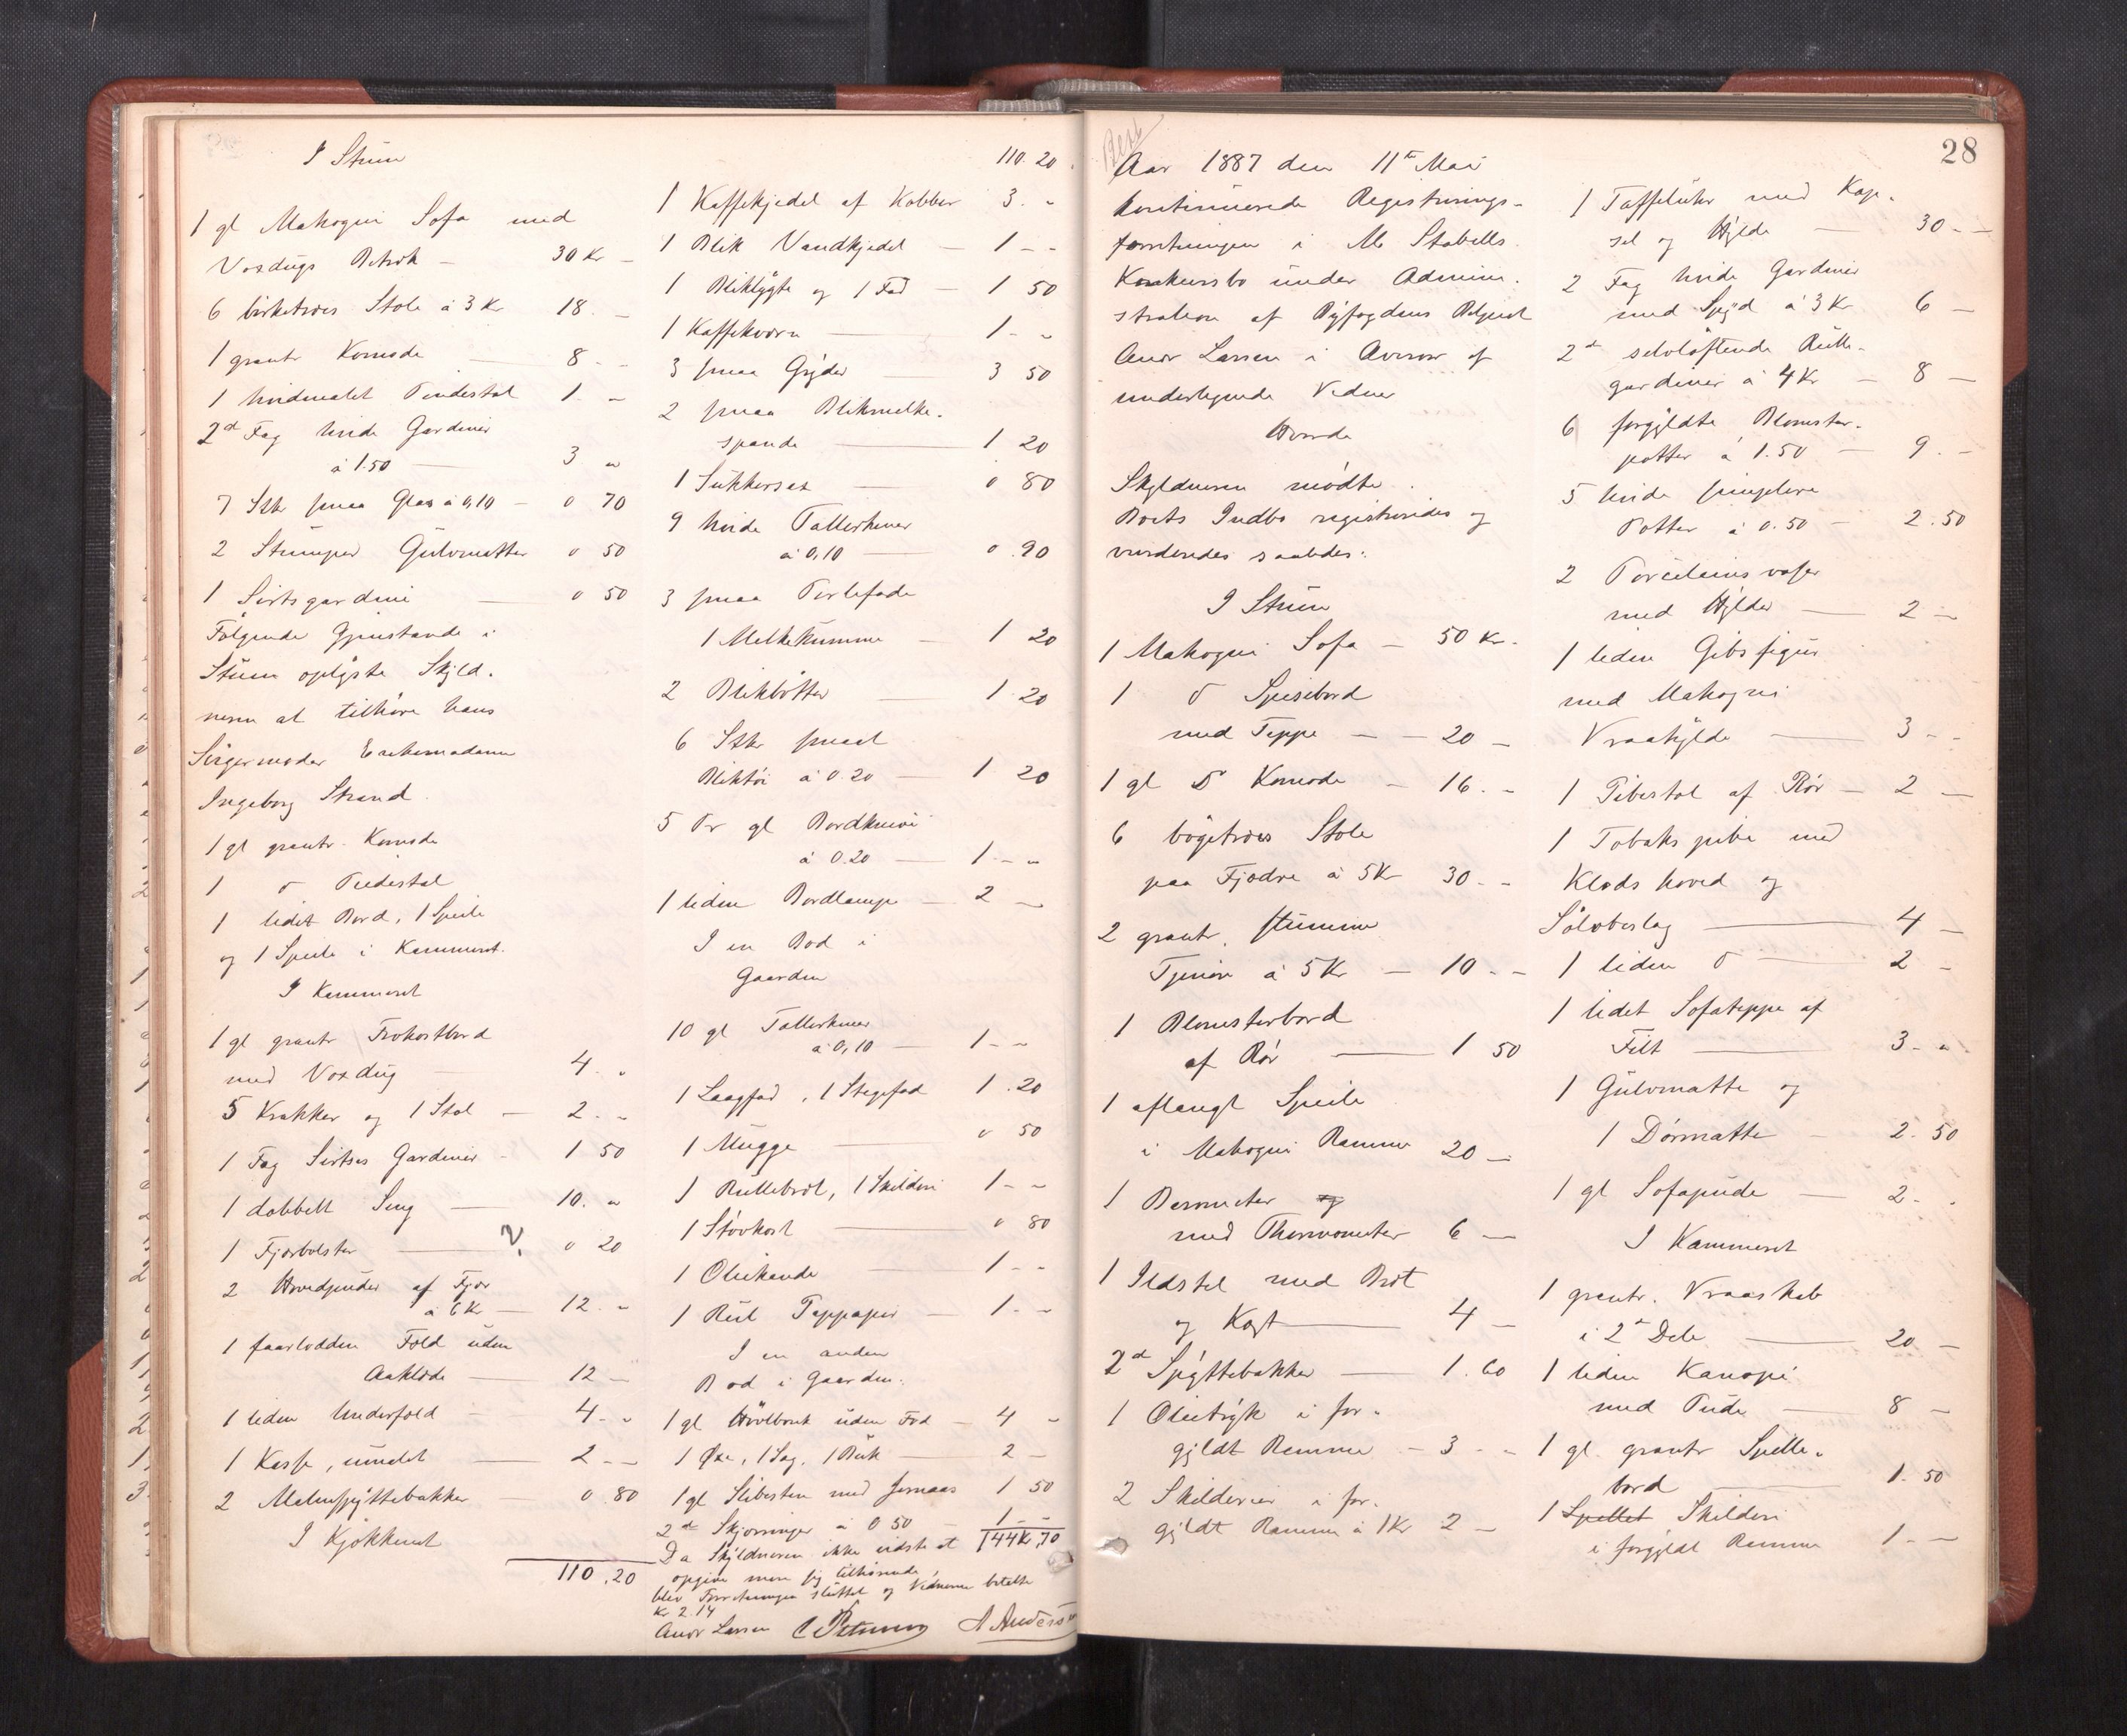 I Stuen
1 gl Mahogni Sofa med
Voxdugs Betræk - 30 Kr -
6 birketræes Stole á 3 Kr 18. -
1 grantr Komode 8 - -
1 hvidmalet Pindestol 1. -
2 d Fag hvide Gardiner
á 1.50 - 3 "
7 Stkr smaa Glas á 0,10 - 0 70
2 Stumper Gulvmatter 0 50
1 Sirtsgardin 0 50
Følgende Gjenstande i
Stuen oplyste Skyld-
neren at tilhøre hans
Svigermoder Enkemadam
Ingeborg Strand.
1 gl grantr. Komode
1 d Pidestal
1 lidet Bord, 1 Speile
og 1 Speile i Kammeret.
I Kammeret
1 gl grantr Frokostbord
med Voxdug 4. "
5 Krakker og 1 Stol - 2. -
1 Fag Sirtses Gardiner - 1 50
1 dobbelt Seng 10. "
1 Fjærbolster ? 0 20
2 Hovedpuder af Fjær
á 6 Kr - 12. -
1 faarlodden Fold uden
Aaklæde - 12 -
1 liden Underfold - 4 - -
1 Kasse, umalet 2 - -
2 Malmspyttebakker 0.80
I Kjøkkenet
110.20
110.20.
1 Kaffekjedel af Kobber 3. -
1 Blik Vandkjedel - 1 - -
1 Bliklygte og 1 Fad - 1 50
1 Kaffekværn 1 - -
3 smaa Gryder 3 50
2 smaa Blikmelke-
spande 1 20
1 Sukkersax 0 80
9 hvide Tallerkener
á 0,10 0.90
3 smaa Perlefade
1 Melkekumme - 1 20
2 Blikbøtter 1 20
6 Stkr smaat
Bliktøi á 0.20 - 1 20
5 Pr gl Bordknive
á 0.20 - 1 - -
1 liden Bordlampe - 2 -
I en Bod i
Gaarden
10 gl Tallerkener
á 0,10 - 1 - -
1 Laagfad, 1 Stegefad 1.20
1 Mugge 0 50
1 Rullebræt, 1 Skilderi 1 - -
1 Støvkost 0 80
1 Oliekande 1 - -
1 Rul Tappapir - 1 - -
I en anden
Bod i Gaarden.
1 gl Høvlbænk uden Fod - 4 -
1 Øxe, 1 Sag, 1 Buk - 2 -
1 gl Slibesten med Jernaas 1 50
2 de Skjæringer á 0 50 - 1 - -
144 Kr,70
Da Skyldneren ikke vidste at
opgive mere sig tilhørende,
blev Forretningen sluttet og Vidnerne betalte
Kr 2.14
Andr Larsen C Petersen A Andersen
28
Aar 1887 den 11te Mai
kontinuerede Registrerings-
forretningen i M. Stabells
Konkursbo under Admini-
stration af Byfogdens Betjent
Andr Larsen i Overvær af
undertegnede Vidner
Hvorda
Skyldneren mødte.
Boets Indbo registreredes og
vurderedes saaledes:
I Stuen
1 Mahogni Sofa - 50 Kr.
1 d Spisebord
med Teppe - - 20 -
1 gl d Komode - 16. -
6 bøgetræes Stole
paa Fjædre á 5 Kr 30. -
2 grantr. stumme
Tjenere á 5 Kr - 10 - -
1 Blomsterbord
af Rør 1 50
1 aflangt Speile
i Mahogni Ramme 20 -
1 Barometer og
med Thermometer 6 -
1 Ildstel med Bræt
og Kost 4 -
2 d Spyttebakker 1.60
1 Olietryk i for-
gyldt Ramme - 3 - -
2 Skilderier i for-
gyldt Ramme á 1 Kr 2 -
1 Taffeluhr med Kap-
sel og Hylde 30 - -
2 Fag hvide Gardiner
med Spyd á 3 Kr 6 -
2 d selvløftende Rulle-
gardiner á 4 Kr - 8 -
6 forgyldte Blomster-
potter á 1.50 - 9. -
5 hvide simplere
Potter á 0.50 - 2.50
2 Porcelæns vaser
med Hylder 2 -
1 liden Gibs figur
med Mahogni
Vraahylde 3 - -
1 Pibestol af Rør - 2 -
1 Tobaks pibe med
Klods hoved og
Sølvbeslag 4 -
1 liden d 2 -
1 lidet Sofateppe af
Filt 3 - "
1 Gulvmatte og
1 Dørmatte - 2.50
1 gl Sofapude - 2 - .
I Kammeret
1 grantr. Vraaskab
i 2 d Dele 20 -
1 liden Kanapé
med Pude 8 -
1 gl grantr Spille-
bord 1.50
1 Spillet Skilderi
i forgyldt Ramme 1. -